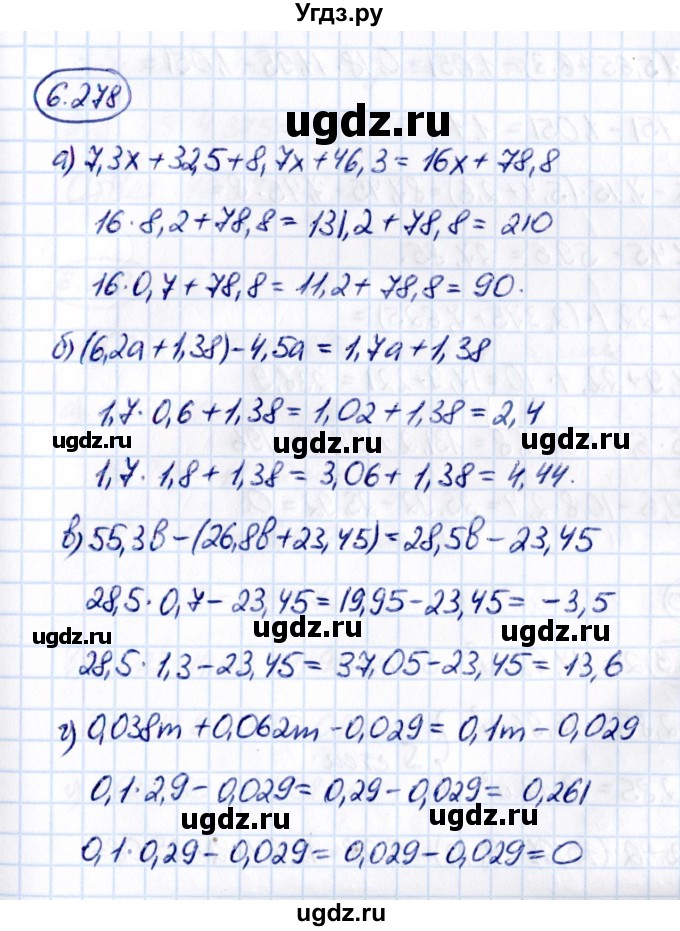 Угдз.ру
6.278
ugdz.ru
а) 7,3x + 32,5 + 8,7x + 46,3 = 16x + 78,8
16 · 8,2 + 78,8 = 131,2 + 78,8 = 210
ugdz.ru
ugdz.ru
16 · 0,7 + 78,8 = 11,2 + 78,8 = 90.
б) (6,2a + 1,38) - 4,5a = 1,7a + 1,38
1,7 · 0,6 + 1,38 = 1,02 + 1,38 = 2,4
ugdz.ru
ugdz.ru
ugdz.ru
1,7 · 1,8 + 1,38 = 3,06 + 1,38 = 4,44.
в) 55,3в - (26,8в + 23,45) = 28,5в - 23,45
28,5 · 0,7 - 23,45 = 19,95 - 23,45 = -3,5
ugdz.ru
ugdz.ru
ugdz.ru
28,5 · 1,3 - 23,45 = 37,05 - 23,45 = 13,6
г) 0,038m + 0,062m - 0,029 = 0,1m - 0,029
0,1 · 2,9 - 0,029 = 0,29 - 0,029 = 0,261
ugdz.ru
ugdz.ru
0,1 · 0,29 - 0,029 = 0,029 - 0,029 = 0
ugdz.ru